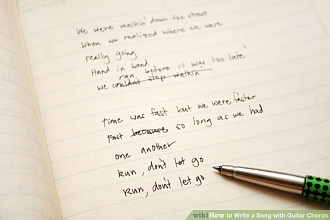 We were walkin' down the street
When we realized where we were
really going
Hand in hand
run before it was too late"
We couldn't stop walkin
time was fast but we were faster
Fast because so long as we had
one another
run, don't let go
Run, don't let go
wiki How to Write a Song with Guitar Chords